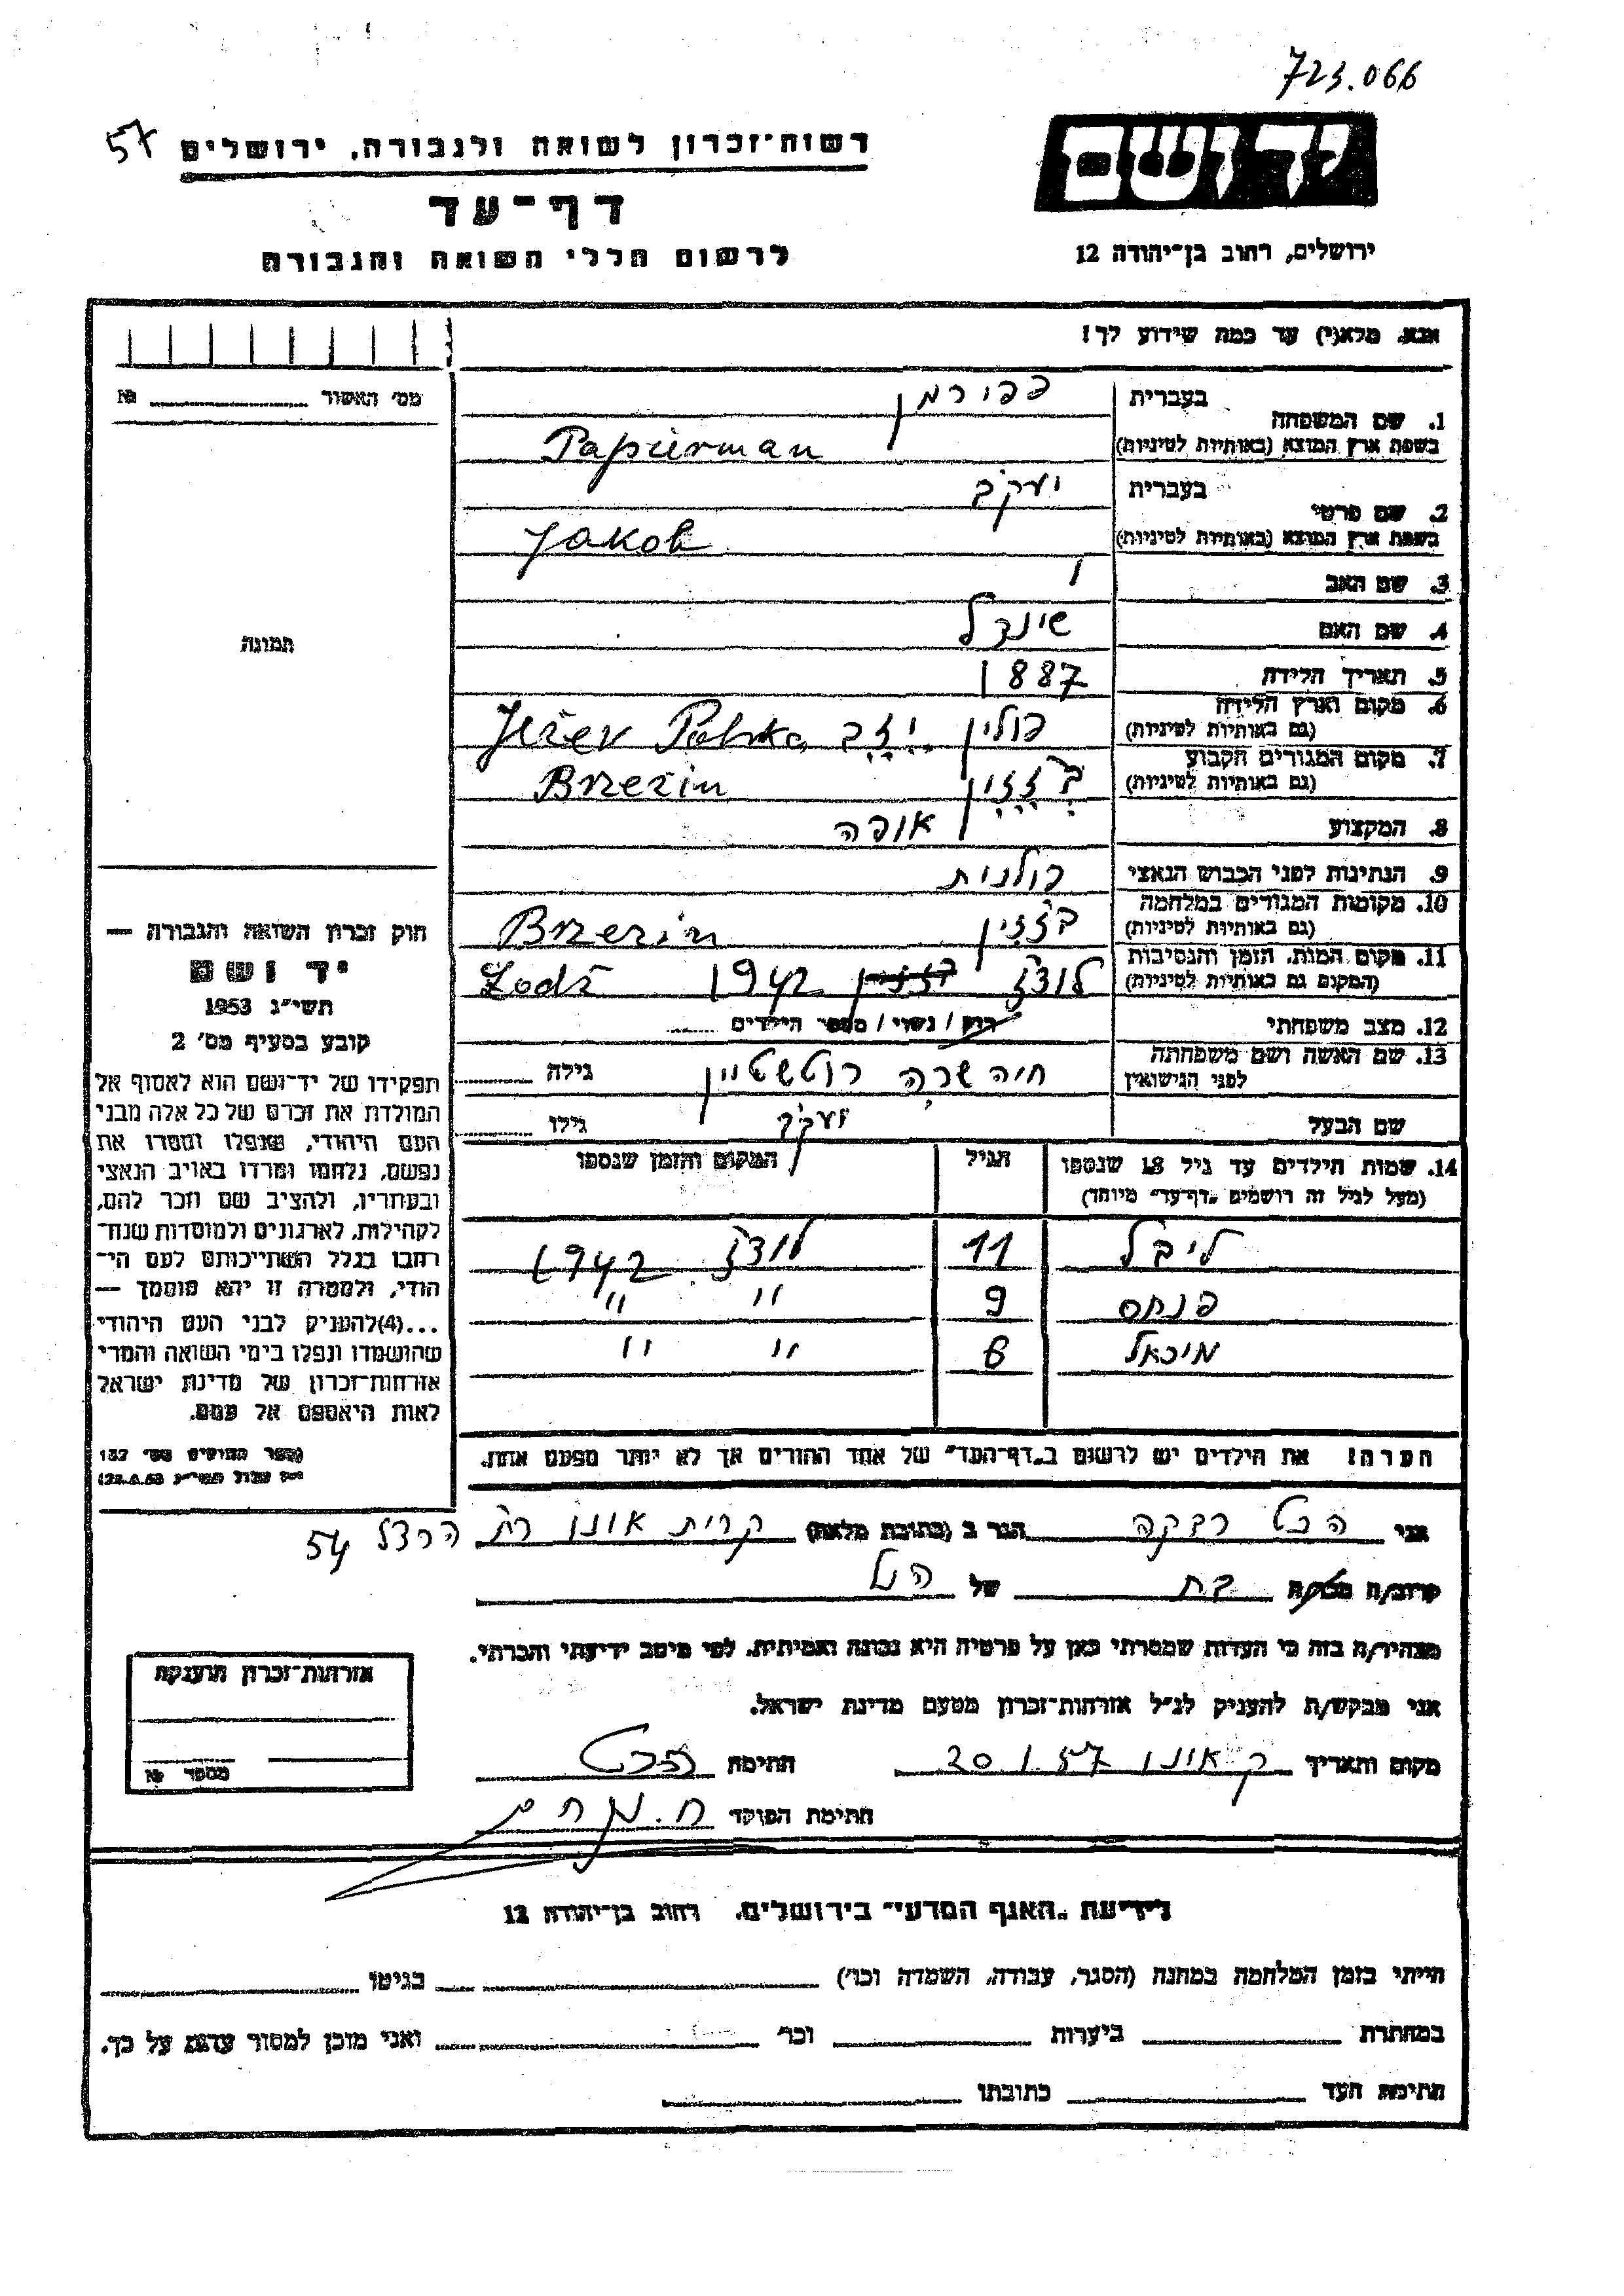 723.066
57
רשות־זכרון לשואה ולגבורה, ירושלים
דף־עד
לרשום חללי השואה והגבורה
יד ושם
ירושלים, רחוב בן־יהודה 12
אנא, מלא(י) עד כמה שידוע לך!
מס׳ האשור № 
תמונה
1. שם המשפחה
בעברית פפורמן
בשפת ארץ המוצא (באותיות לטיניות) Papierman
2. שם פרטי
בעברית יעקב
בשפת ארץ המוצא (באותיות לטיניות) Jakob
3. שם האב
4. שם האם שינדל
5. תאריך הלידה 1887
6. מקום וארץ הלידה
(גם באותיות לטיניות) פולין Polska
7. מקום המגורים הקבוע
(גם באותיות לטיניות) בזזין Brzezin
8. המקצוע אופה
9. הנתינות לפני הכבוש הנאצי פולנית
10. מקומות המגורים במלחמה
(גם באותיות לטיניות) בזזין Brzezin
11. מקום המות, הזמן והנסיבות
(המקום גם באותיות לטיניות) לודז 1942 Łodz
12. מצב משפחתי רווק / נשוי / מספר הילדים
13. שם האשה ושם משפחתה
לפני הנישואין חיה שרה רוטשטיין גילה
שם הבעל יעקב גילו
14. שמות הילדים עד גיל 18 שנספו
(מעל לגיל זה רושמים „דף־עד״ מיוחד)
הגיל
המקום והזמן שנספו
ליבל 11 לודז 1942
פנחס 9 " "
מיכאל 6 " "
הערה! את הילדים יש לרשום ב„דף־העד״ של אחד ההורים אך לא יותר מפעם אחת.
חוק זכרון השואה והגבורה —
יד ושם
תשי״ג 1953
קובע בסעיף מס׳ 2
תפקידו של יד־ושם הוא לאסוף אל
המולדת את זכרם של כל אלה מבני
העם היהודי, שנפלו ומסרו את
נפשם, נלחמו ומרדו באויב הנאצי
ובעוזריו, ולהציב שם וזכר להם,
לקהילות, לארגונים ולמוסדות שנח־
רבו בגלל השתייכותם לעם הי־
הודי, ולמטרה זו יהא מוסמך —
...(4)להעניק לבני העם היהודי
שהושמדו ונפלו בימי השואה והמרי
אזרחות־זכרון של מדינת ישראל
לאות היאספם אל עמם.
(ספר החוקים מס׳ 132
אני הכט רבקה הגר ב (כתובת מלאה) קרית אונו רח הרצל 54
קרוב/ה מכר/ה בת של הנל
מצהיר/ה בזה כי העדות שמסרתי כאן על פרטיה היא נכונה ואמיתית, לפי מיטב ידיעתי והכרתי.
אני מבקש/ת להעניק לנ״ל אזרחות־זכרון מטעם מדינת ישראל.
מקום ותאריך ק אונו 20.1.57 חתימה הכט
חתימת הפוקד
אזרחות־זכרון הוענקה
מספר №
לידיעת „האגף המדעי״ בירושלים, רחוב בן־יהודה 12
הייתי בזמן המלחמה במחנה (הסגר, עבודה, השמדה וכו׳) בגיטו
במחתרת ביערות וכו׳ ואני מוכן למסור עדות על כך.
חתימת העד כתובתו